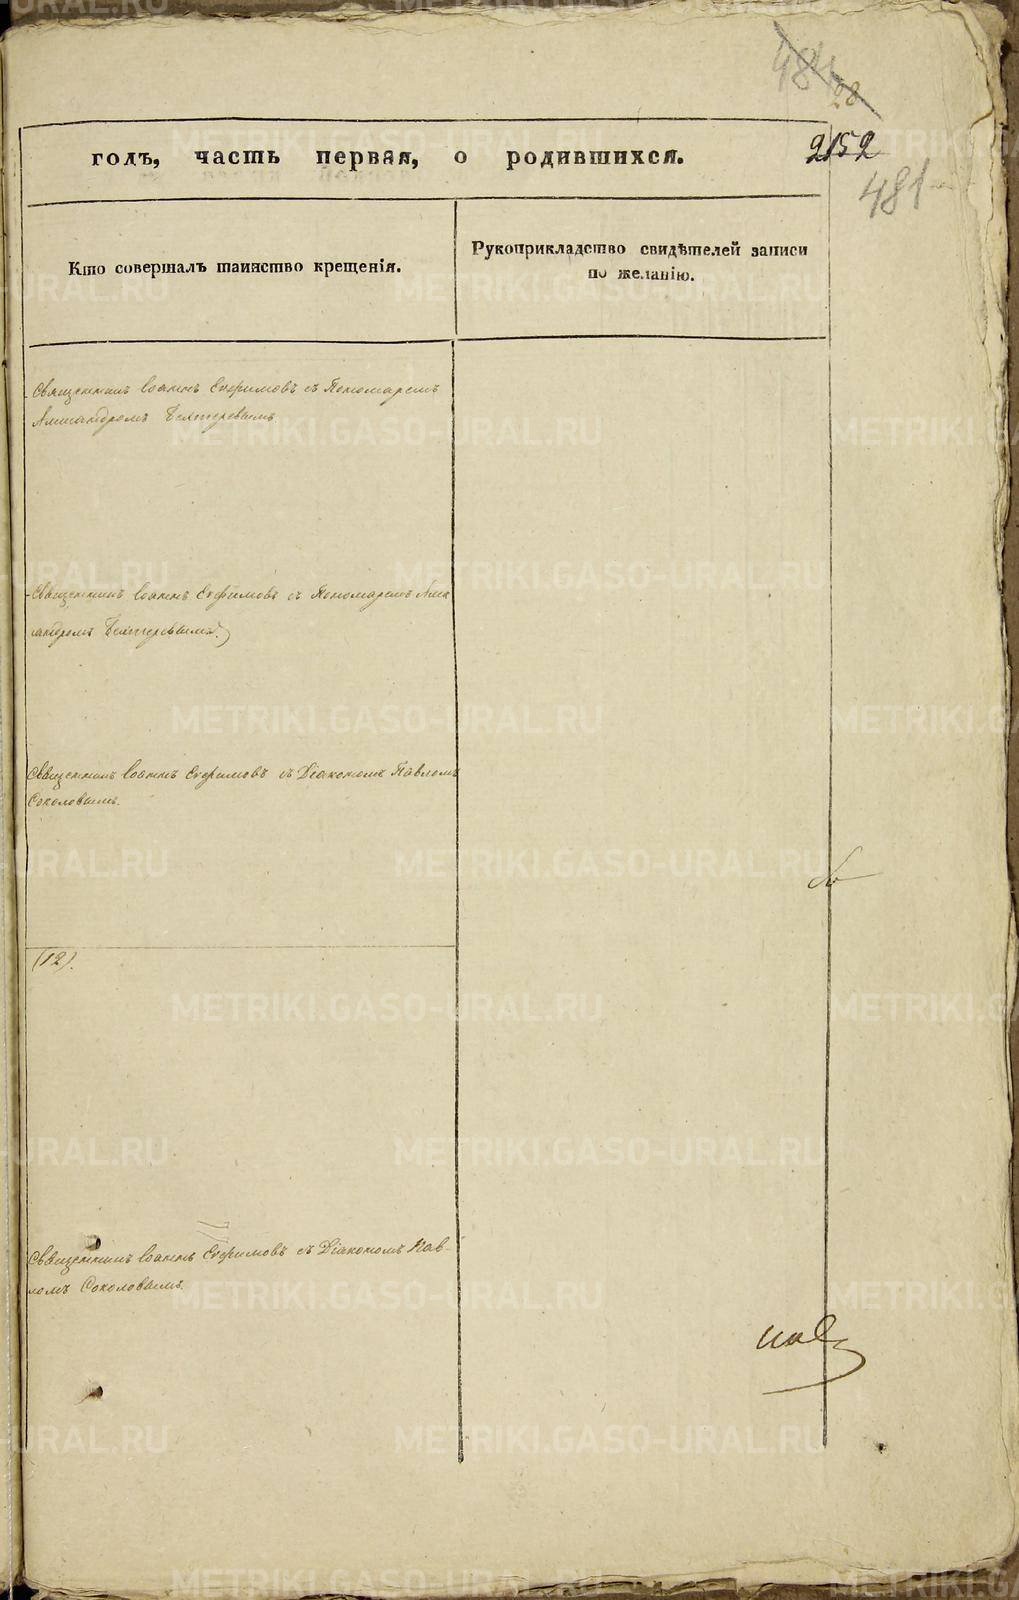 484
28
годъ, часть первая, о родившихся.
2152
481
Кто совершалъ таинство крещенія.
Рукоприкладство свидѣтелей записи
по желанію.
Священникъ Іоаннъ Ефимовъ съ Пономаремъ
Александромъ Бехтеревымъ
Священникъ Іоаннъ Ефимовъ съ Пономаремъ Алек
сандромъ Бехтеревымъ.
Священникъ Іоаннъ Ефимовъ съ Діакономъ Павломъ
Соколовымъ.
(12).
Священникъ Іоаннъ Ефимовъ съ Діакономъ Пав-
ломъ Соколовымъ.
METRIKI.GASO-URAL.RU